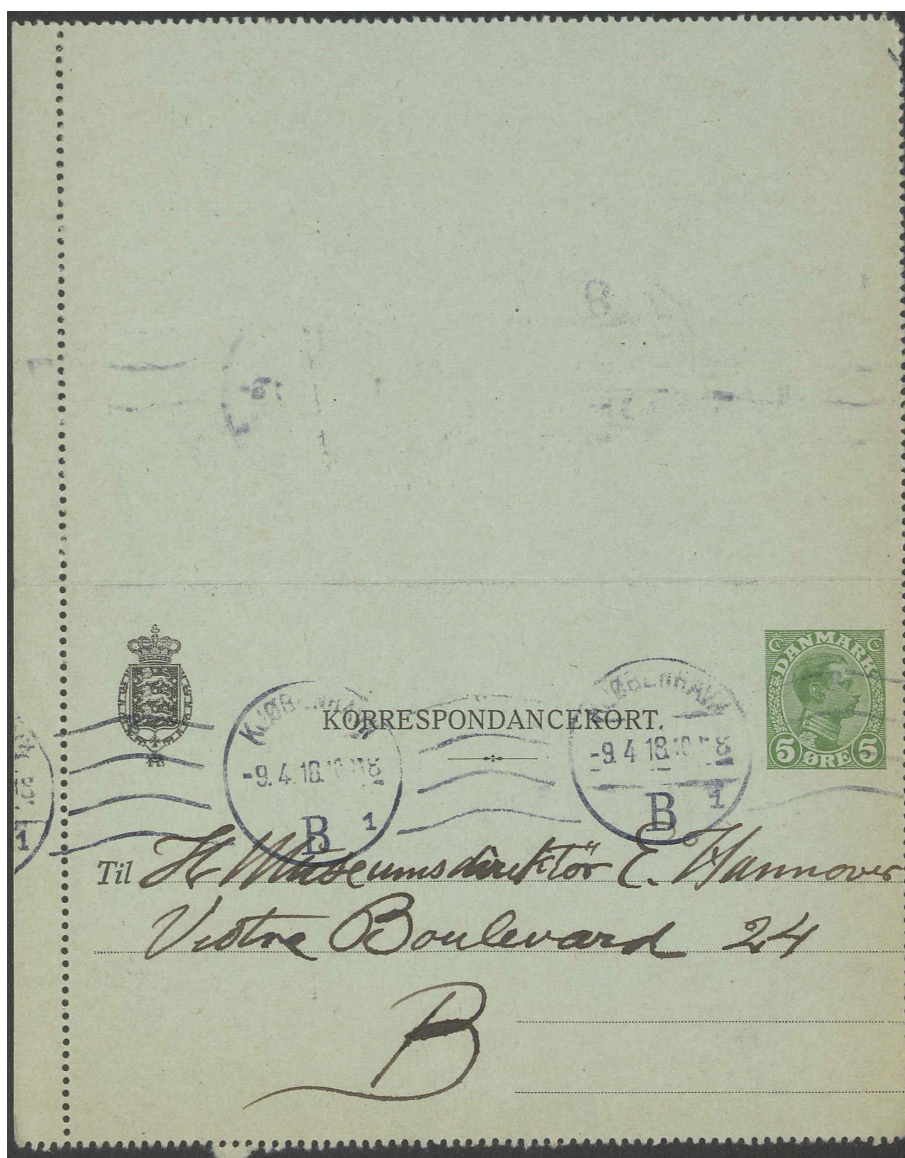 DANMARK
5 ØRE 5
KORRESPONDANCEKORT.
KJØBENHAVN
-9.4.18.
B 1
KJØBENHAVN
-9.4 18.
B 1
1
Til H Museumsdirektör E. Hannover
Vestre Boulevard 24
B
B